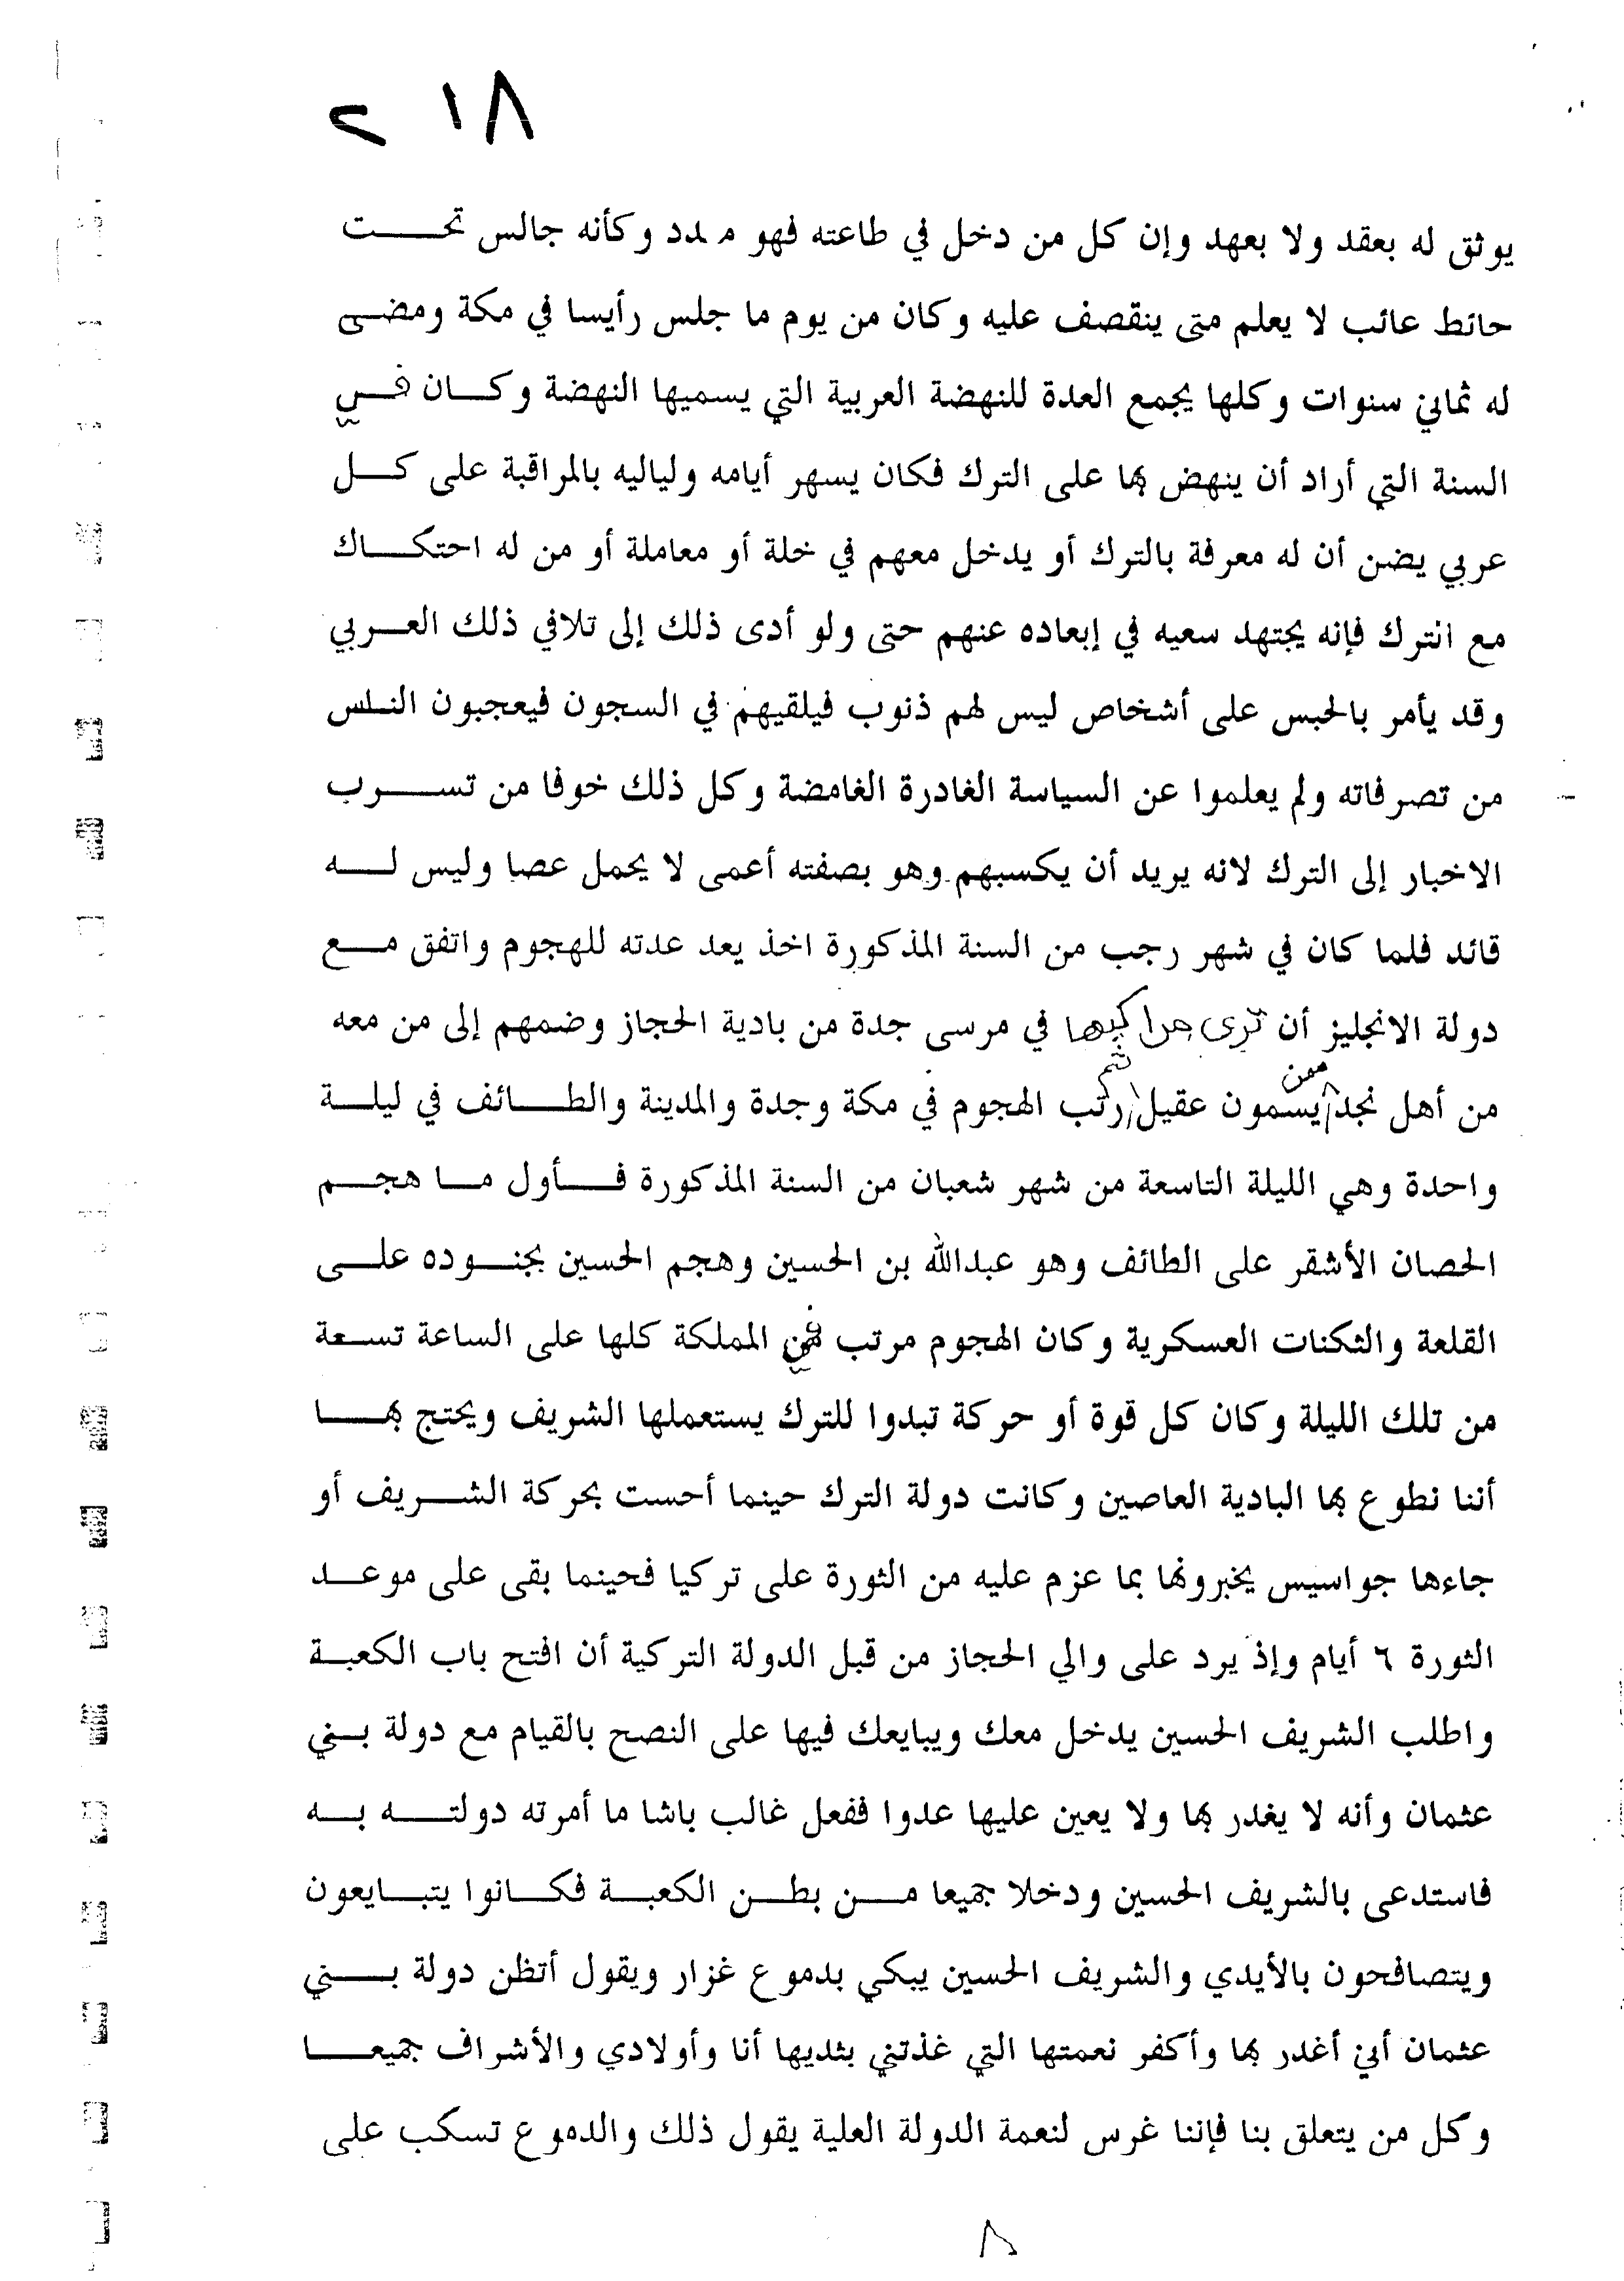 ٢١٨
يوثق له بعقد ولا بعهد وإن كل من دخل في طاعته فهو مهدد وكأنه جالس تحت
حائط عائب لا يعلم متى ينقصف عليه وكان من يوم ما جلس رأيسا في مكة ومضى
له ثماني سنوات وكلها يجمع العدة للنهضة العربية التي يسميها النهضة وكان في
السنة التي أراد أن ينهض بها على الترك فكان يسهر أيامه ولياليه بالمراقبة على كل
عربي يضن أن له معرفة بالترك أو يدخل معهم في خلة أو معاملة أو من له احتكاك
مع الترك فإنه يجتهد سعيه في إبعاده عنهم حتى ولو أدى ذلك إلى تلافي ذلك العربي
وقد يأمر بالحبس على أشخاص ليس لهم ذنوب فيلقيهم في السجون فيعجبون الناس
من تصرفاته ولم يعلموا عن السياسة الغادرة الغامضة وكل ذلك خوفا من تسرب
الاخبار إلى الترك لانه يريد أن يكسبهم وهو بصفته أعمى لا يحمل عصا وليس له
قائد فلما كان في شهر رجب من السنة المذكورة اخذ يعد عدته للهجوم واتفق مع
دولة الانجليز أن ترى مراكبها في مرسى جدة من بادية الحجاز وضمهم إلى من معه
من أهل نجد ممن يسمون عقيل ثم رتب الهجوم في مكة وجدة والمدينة والطائف في ليلة
واحدة وهي الليلة التاسعة من شهر شعبان من السنة المذكورة فأول ما هجم
الحصان الأشقر على الطائف وهو عبدالله بن الحسين وهجم الحسين بجنوده على
القلعة والثكنات العسكرية وكان الهجوم مرتب في المملكة كلها على الساعة تسعة
من تلك الليلة وكان كل قوة أو حركة تبدوا للترك يستعملها الشريف ويحتج بها
أننا نطوع بها البادية العاصين وكانت دولة الترك حينما أحست بحركة الشريف أو
جاءها جواسيس يخبرونها بما عزم عليه من الثورة على تركيا فحينما بقى على موعد
الثورة ٦ أيام وإذ يرد على والي الحجاز من قبل الدولة التركية أن افتح باب الكعبة
واطلب الشريف الحسين يدخل معك ويبايعك فيها على النصح بالقيام مع دولة بني
عثمان وأنه لا يغدر بها ولا يعين عليها عدوا ففعل غالب باشا ما أمرته دولته به
فاستدعى بالشريف الحسين ودخلا جميعا من بطن الكعبة فكانوا يتبايعون
ويتصافحون بالأيدي والشريف الحسين يبكي بدموع غزار ويقول أتظن دولة بني
عثمان أني أغدر بها وأكفر نعمتها التي غذتني بثديها أنا وأولادي والأشراف جميعا
وكل من يتعلق بنا فإننا غرس لنعمة الدولة العلية يقول ذلك والدموع تسكب على
٨